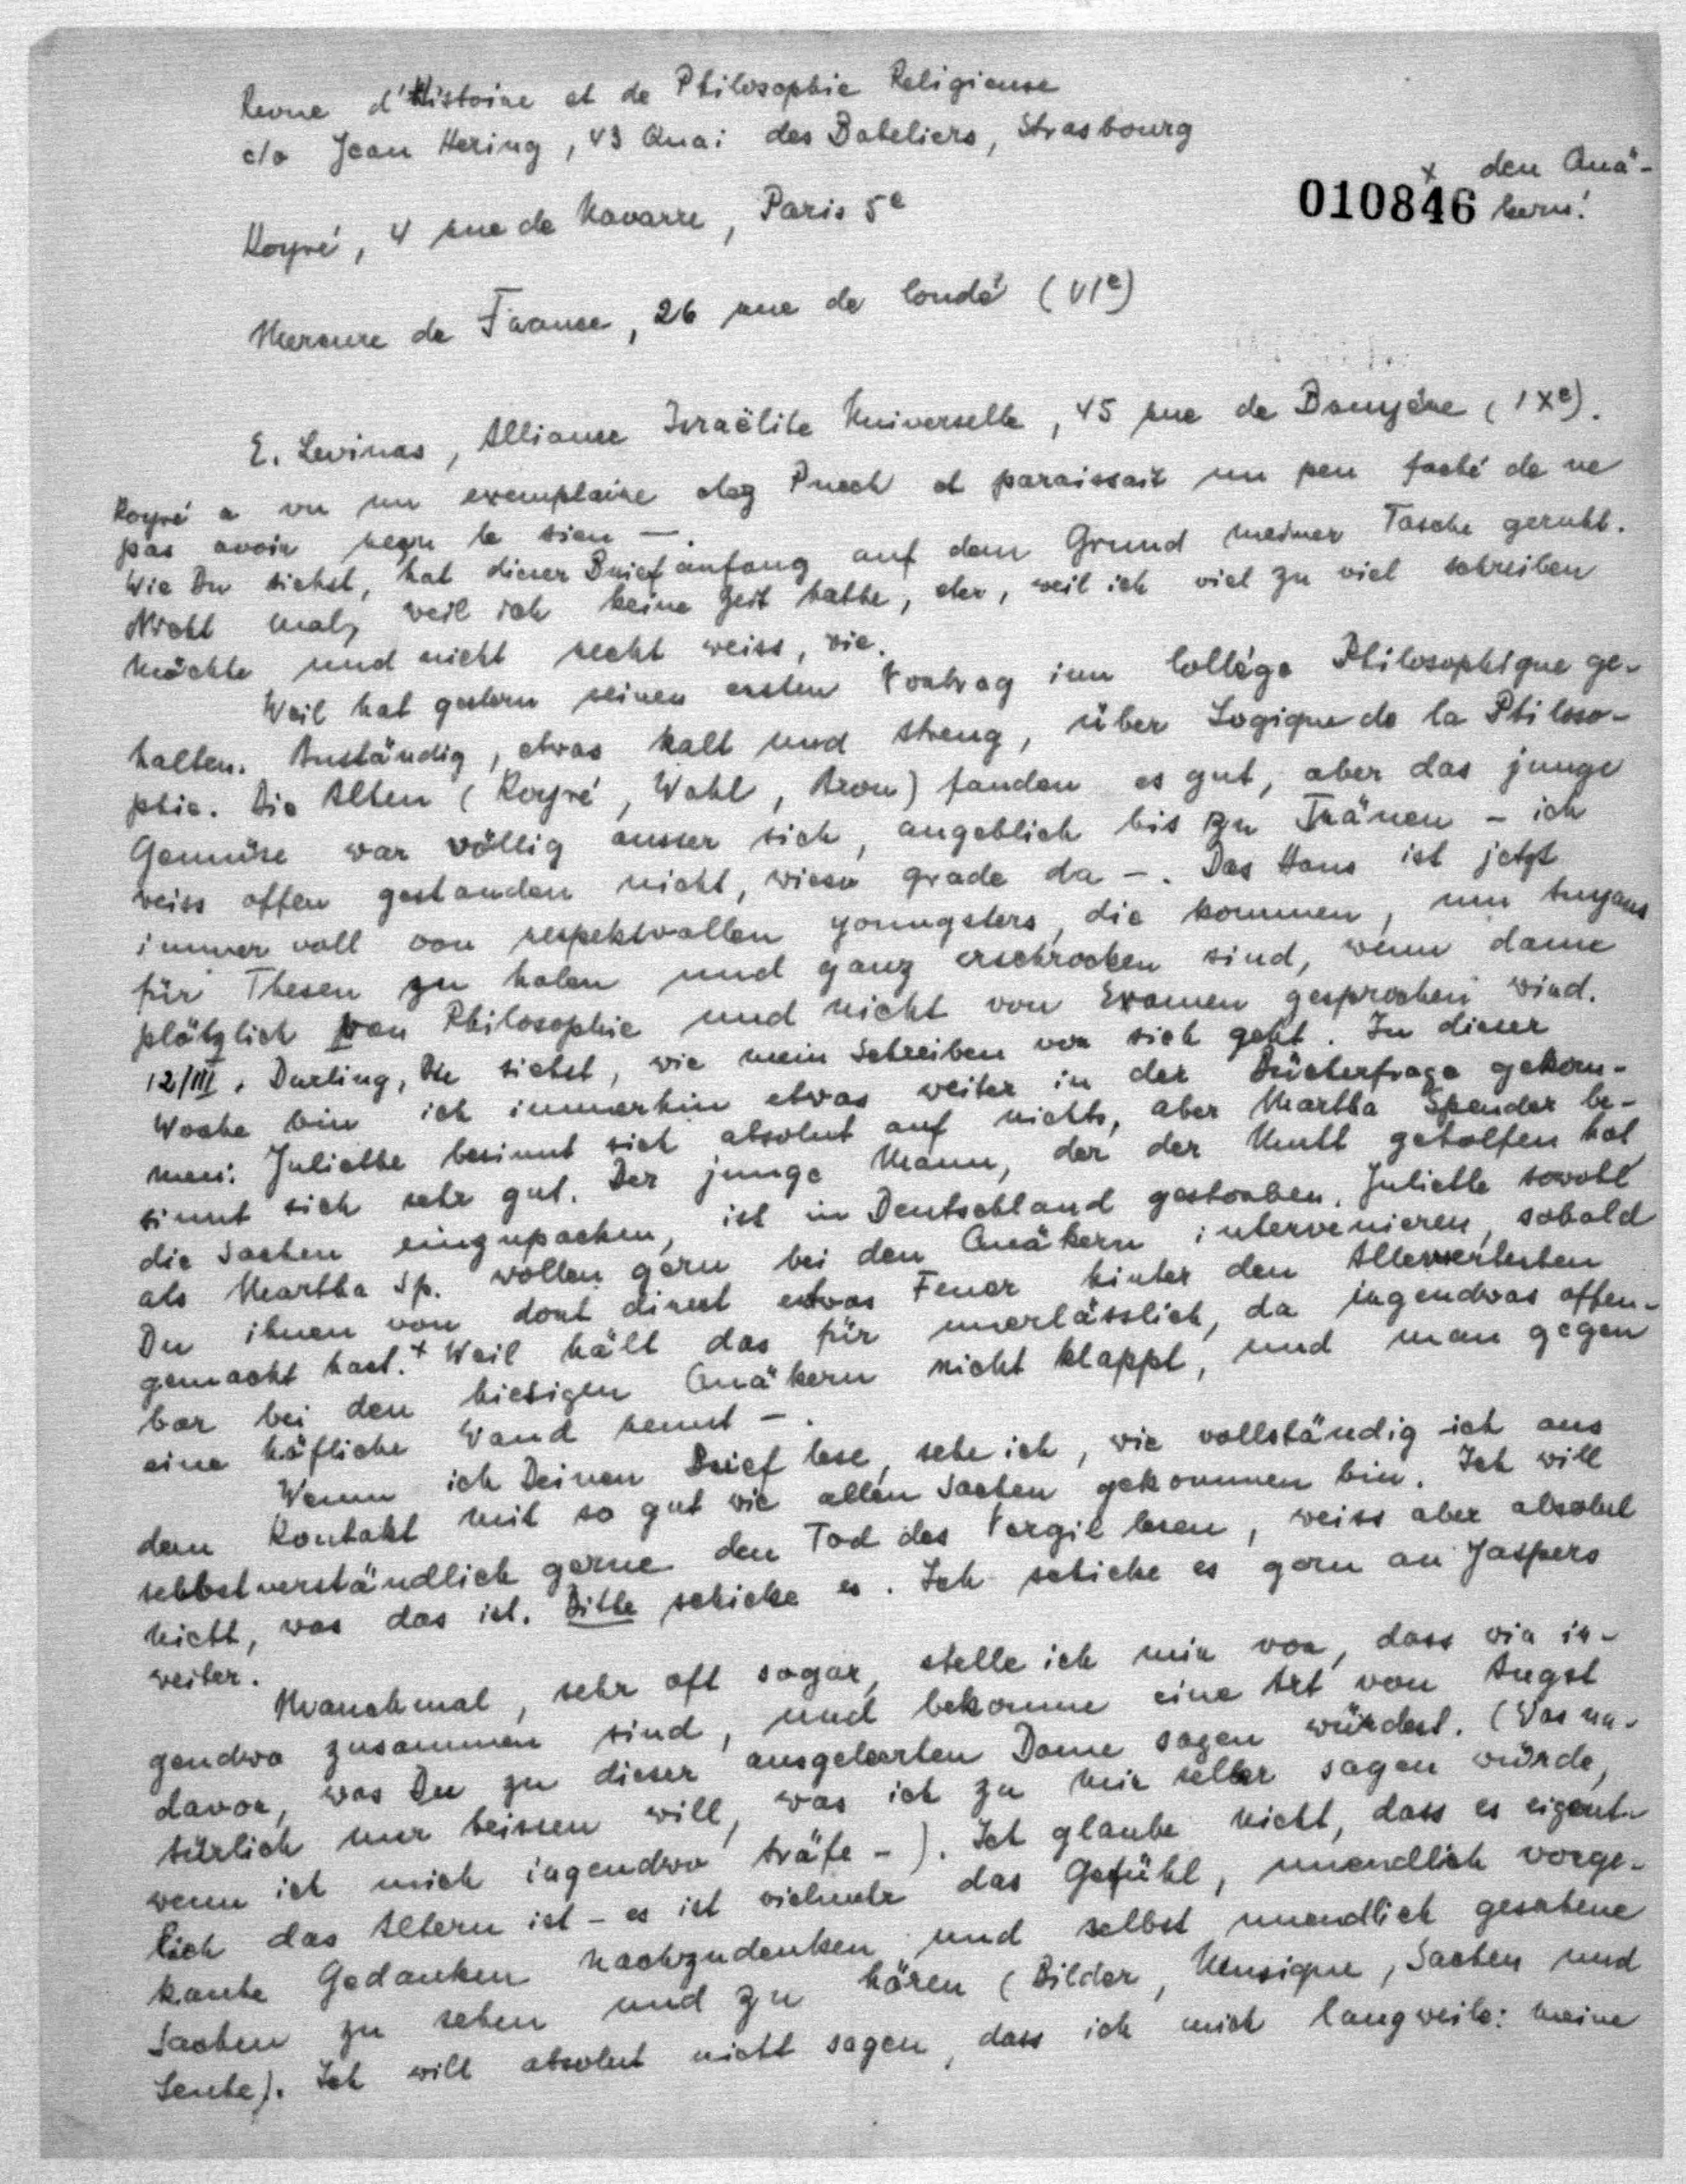 Revue d'Histoire et de Philosophie Religieuse
c/o Jean Hering, 43 Quai des Bateliers, Strasbourg
x den Quä-
010846 kern!
Koyré, 4 rue de Navarre, Paris 5e
Mercure de France, 26 rue de Condé (VIe)
E. Levinas, Alliance Israëlite Universelle, 45 rue de Bruyére (IXe).
Koyré a vu un exemplaire chez Puech et paraissait un peu faché de ne
pas avoir reçu le sien —.
Wie Du siehst, hat dieser Briefanfang auf dem Grund meiner Tasche geruht.
Nicht mal, weil ich keine Zeit hatte, eher, weil ich viel zu viel schreiben
möchte und nicht recht weiss, wie.
Weil hat gestern seinen ersten Vortrag im Collége Philosophique ge-
halten. Anständig, etwas kalt und streng, über Logique de la Philoso-
phie. Die Alten (Koyré, Wahl, Aron) fanden es gut, aber das junge
Gemüse war völlig ausser sich, angeblich bis zu Tränen – ich
weiss offen gestanden nicht, wieso grade da –. Das Haus ist jetzt
immer voll von respektvollen youngsters, die kommen, um
für Thesen zu holen und ganz erschrocken sind, wenn dann
plötzlich von Philosophie und nicht von Examen gesprochen wird.
12/III. Darling, Du siehst, wie mein Schreiben vor sich geht. In dieser
Woche bin ich immerhin etwas weiter in der Bücherfrage gekom-
men: Juliette besinnt sich absolut auf nichts, aber Martha Spender be-
sinnt sich sehr gut. Der junge Mann, der der Mutt geholfen hat,
die Sachen einzupacken, ist in Deutschland gestorben. Juliette sowohl
als Martha Sp. wollen gern bei den Quäkern intervenieren, sobald
Du ihnen von dort direct etwas Feuer hinter den Allerwertesten
gemacht hast.+ Weil hält das für unerlässlich, da irgendwas offen-
bar bei den hiesigen Quäkern nicht klappt, und man gegen
eine höfliche Wand rennt –.
Wenn ich Deinen Brief lese, sehe ich, wie vollständig ich aus
dem Kontakt mit so gut wie allen Sachen gekommen bin. Ich will
selbstverständlich gerne den Tod des Vergil lesen, weiss aber absolut
nicht, was das ist. Bitte schicke es. Ich schicke es gern an Jaspers
weiter.
Manchmal, sehr oft sogar, stelle ich mir vor, dass wir ir-
gendwo zusammen sind, und bekomme eine Art von Angst
davor, was Du zu dieser ausgeleerten Dame sagen würdest. (Was na-
türlich nur heissen will, was ich zu mir selber sagen würde,
wenn ich mich irgendwo träfe –). Ich glaube nicht, dass es eigent-
lich das Altern ist – es ist vielmehr das Gefühl, unendlich vorge-
kaute Gedanken nachzudenken und selbst unendlich gesehene
Sachen zu sehen und zu hören (Bilder, Musique, Sachen und
Leute). Ich will absolut nicht sagen, dass ich mich langweile: meine